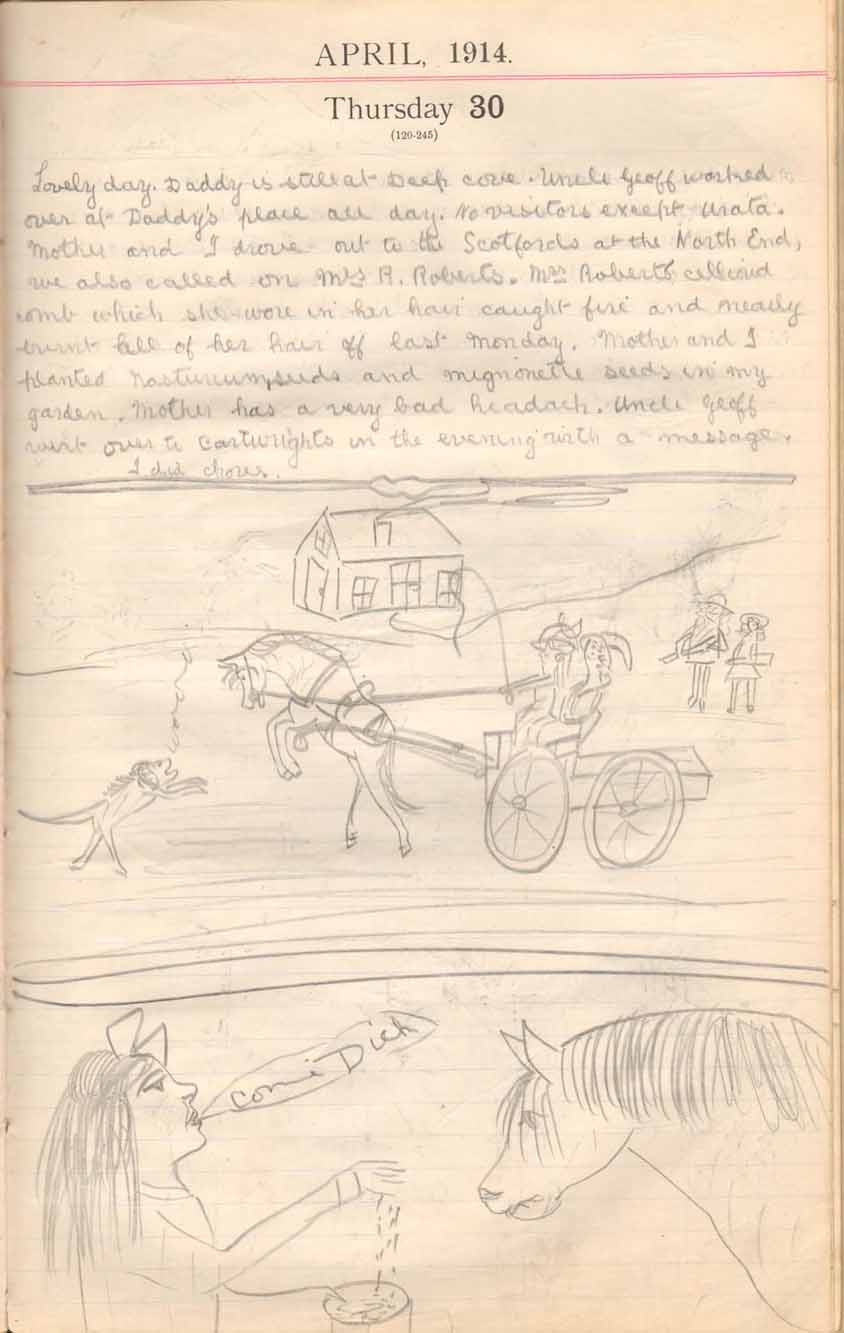 APRIL, 1914.
Thursday 30
(120-245)
Lovely day. Daddy is still at Deep cove. Uncle Geoff worked
over at Daddy's place all day. No visitors except Urata.
Mother and I drove out to the Scotfords at the North End,
we also called on Mrs R. Roberts. Mrs Roberts celliond
comb which she wore in her hair caught fire and nearly
burnt all of her hair off last Monday. Mother and I
planted nasturcumseeds and mignonette seeds in my
garden. Mother has a very bad headach. Uncle Geoff
went over to Cartwrights in the evening with a message.
I did chores.
come Dick